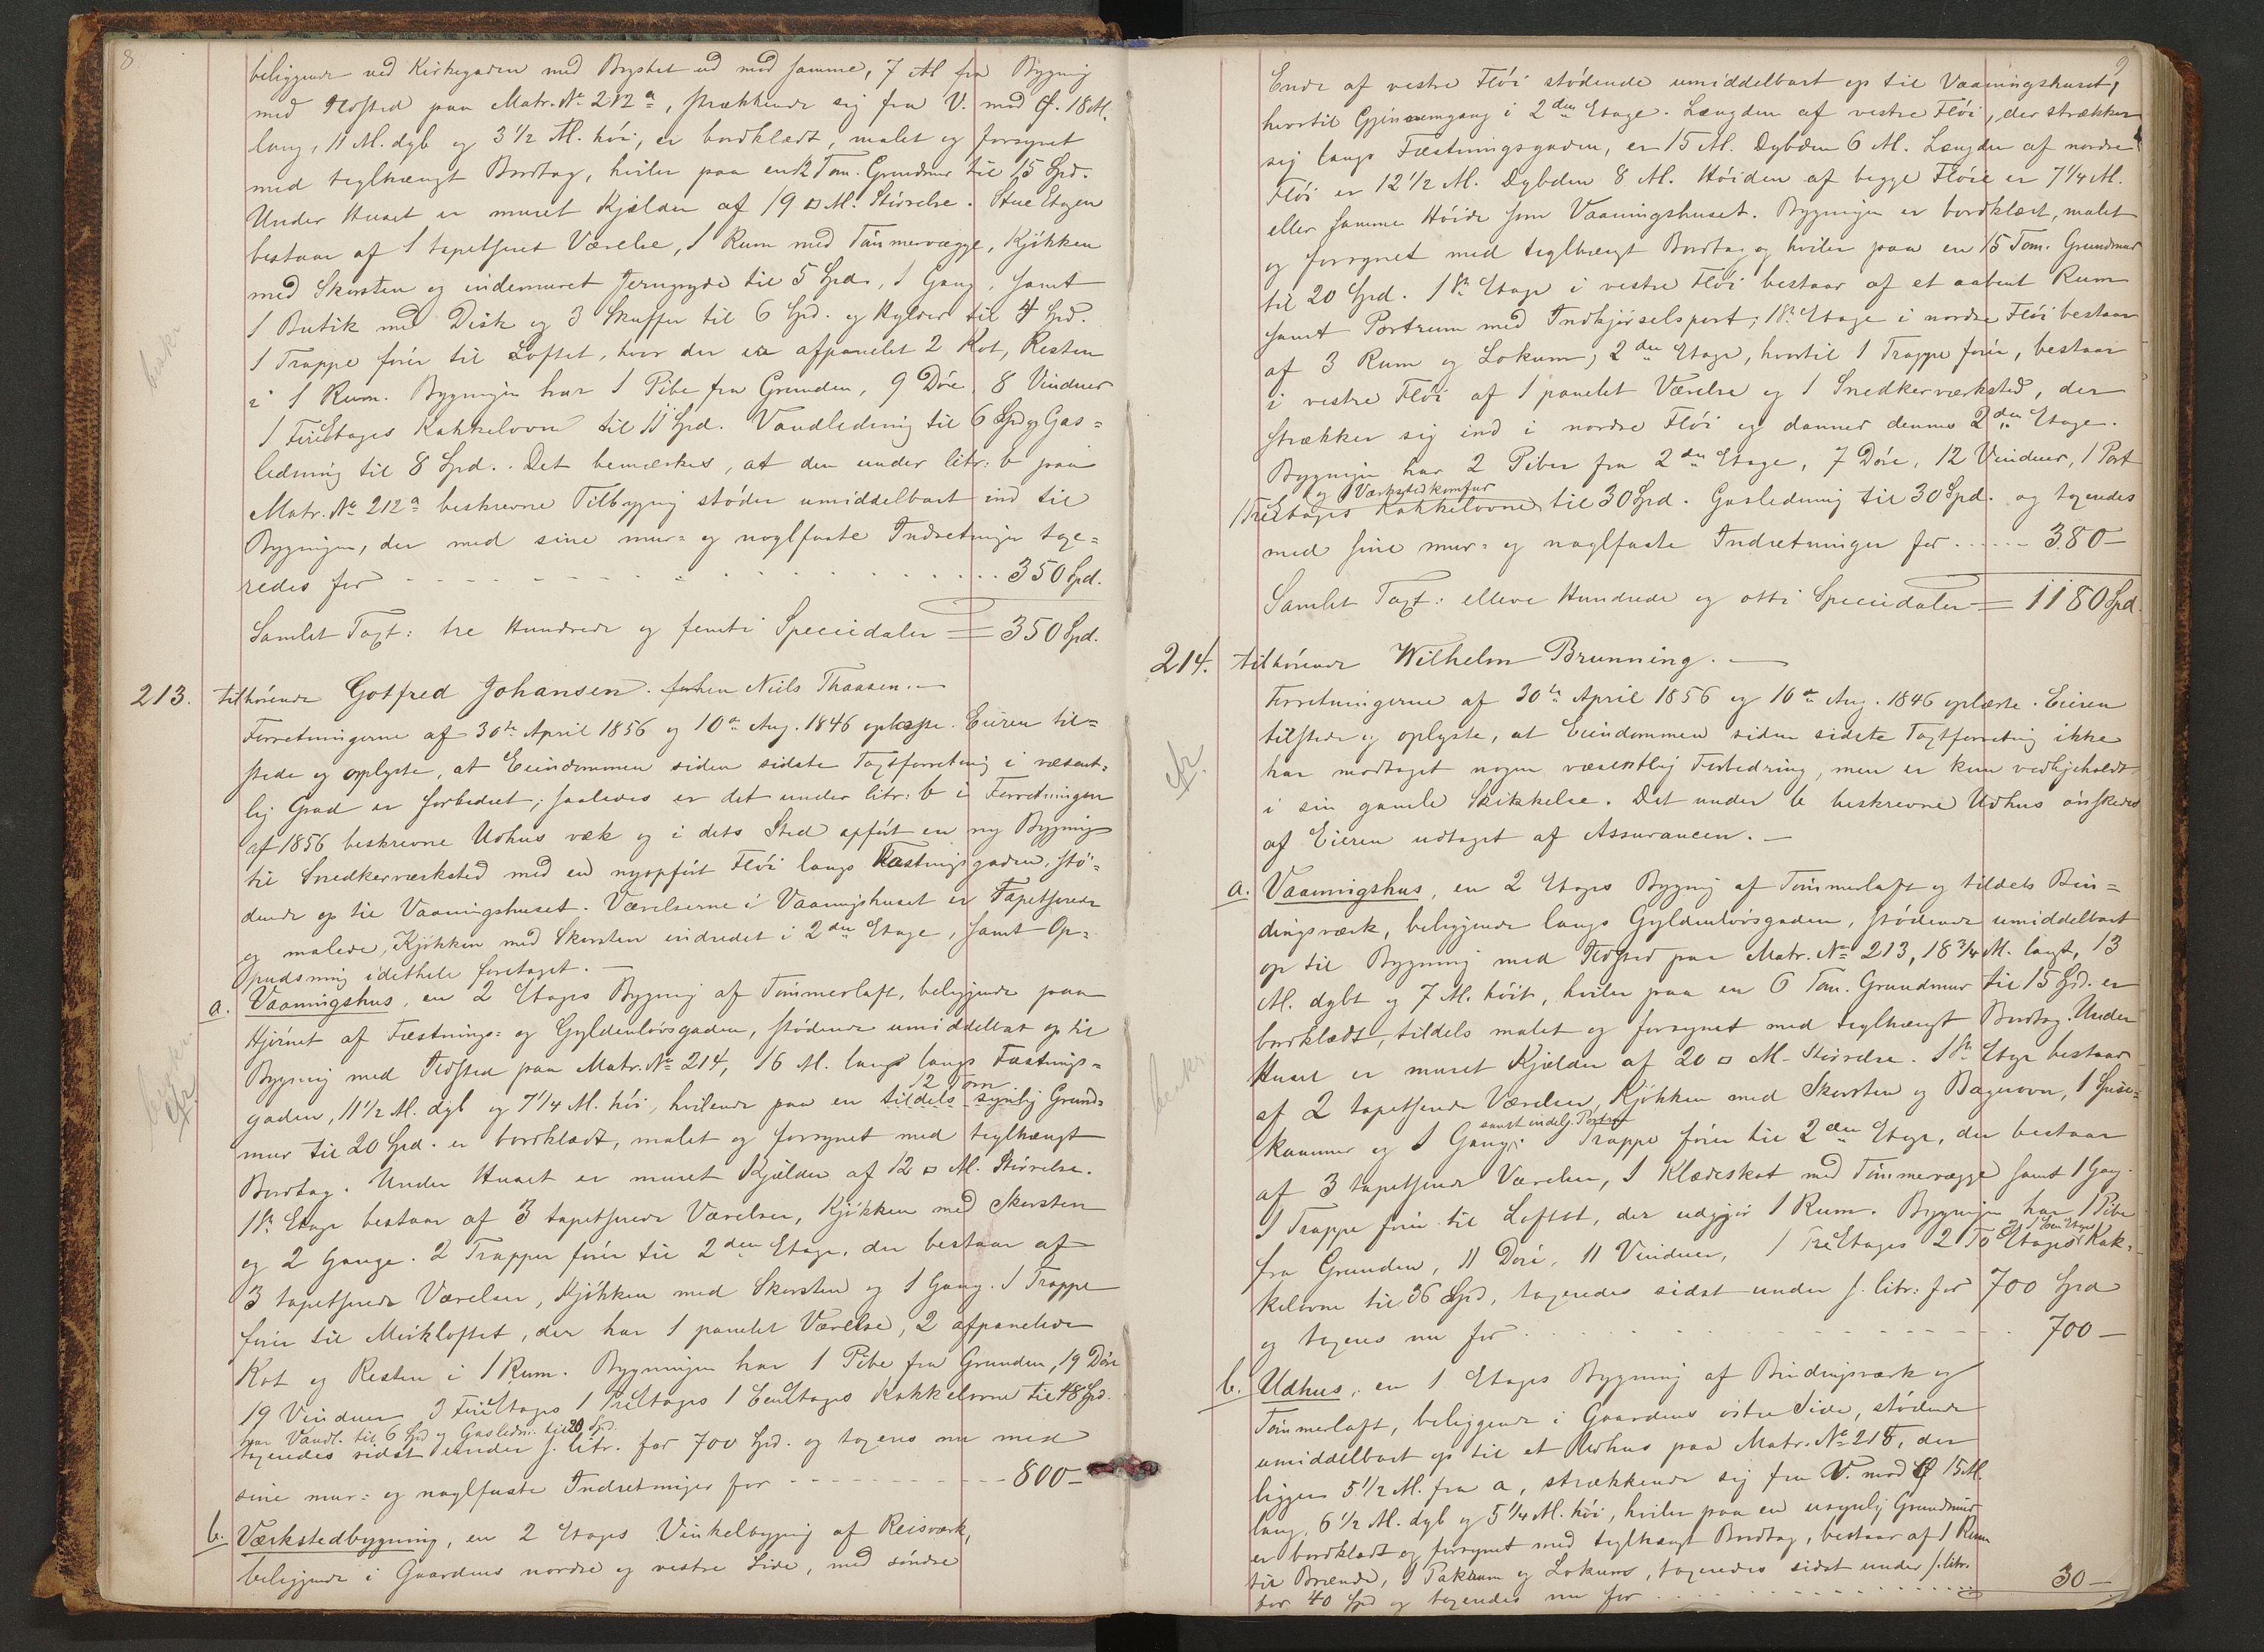 8
beliggende ved Kirkegaden med Brystet ud mod samme, 7 Al fra Bygning
med Ildsted paa Matr. No 212 a, strækkende sig fra V. mod Ø. 18 Al.
lang, 11 Al. dyb og 3 1/2 Al. høi, er bordklædt, malet og forsynet
med teglhængt Bordtag, hviler paa en 12 Tom. Grundmur til 15 Spd.
Under Huset er muret Kjelder af 19 □ Al. Størrelse. Stue Etagen
bestaar af 1 tapetseret Værelse, 1 Rum med Tømmervægge, Kjøkken
med Skorsten og indemuret Jerngryde til 5 Spd., 1 Gang, samt
1 Butik med Disk og 3 Skuffer til 6 Spd. og Hylder til 4 Spd.
1 Trappe fører til Loftet, hvor der er afpanelet 2 Kot, Resten
i 1 Rum. Bygningen har 1 Pibe fra Grunden, 9 Døre, 8 Vinduer
1 FireEtages Kakkelovn til 11 Spd. Vandledning til 6 Spd og Gas=
ledning til 8 Spd. Det bemærkes, at den under litr: b paa
Matr. No 212 a beskrevne Tilbygning støder umiddelbart ind til
Bygningen, der med sine mur= og naglfaste Indretninger taxe=
redes for 350 Spd.
Samlet Taxt: tre Hundrede og femti Speciedaler = 350 Spd.
213. tilhørende Gotfred Johansen. forhen Niels Thaasen.
Forretningerne af 30te April 1856 og 10de Aug. 1846 oplæste. Eieren til=
stede og oplyste, at Eiendommen siden sidste Taxtforretning i væsent=
lig Grad er forbedret; saaledes er det under litr: b i Forretningen
af 1856 beskrevne Udhus væk og i dets Sted opført en ny Bygning
til Snedkerværksted med en nyopført Fløi langs Fæstningsgaden, stø=
dende op til Vaaningshuset. Værelserne i Vaaningshuset er tapetserede
og malede, Kjøkken med Skorsten indredet i 2den Etage, samt Op=
pudsning idethele foretaget.
a. Vaaningshus, en 2 Etages Bygning af Tømmerlaft, beliggende paa
Hjørnet af Fæstnings= og Gyldenløvsgaden, stødende umiddelbar op til
Bygning med Ildsted paa Matr. No 214, 16 Al. lang langs Fæstnings=
12 Tom
gaden, 11 1/2 Al. dyb og 7 1/4 Al. høi, hvilende paa en tildels synlig Grund=
mur til 20 Spd. er bordklædt, malet og forsynet med teglhængt
Bordtag. Under Huset er muret Kjælder af 12 □ Al. Størrelse.
1ste Etage bestaar af 3 tapetserede Værelser, Kjøkken med Skorsten
og 2 Gange. 2 Trapper fører til 2den Etage, der bestaar af
3 tapetserede Værelser, Kjøkken med Skorsten og 1 Gang. 1 Trappe
fører til Mørkloftet, der har 1 panelet Værelse, 2 afpanelede
Kot og Resten i 1 Rum. Bygningen har 1 Pibe fra Grunden, 19 Døre
19 Vinduer 3 FireEtages 1 TreEtages 1 EenEtages Kakkelovne til 48 Spd.
har Vandl. til 6 Spd og Gasledn. til 20 Spd.
taxeredes sidst under s. litr. for 700 Spd. og taxeres nu med
sine mur= og naglfaste Indretninger for 800 –
b. Værkstedbygning, en 2 Etages Vinkelbygning af Reisværk,
beliggende i Gaardens nordre og vestre Side, med søndre
9
Ende af vestre Fløi stødende umiddelbart op til Vaaningshuset,
hvortil Gjennemgang i 2den Etage. Længden af vestre Fløi, der strækker
sig langs Fæstningsgaden, er 15 Al. Dybden 6 Al. Længden af nordre
Fløi er 12 1/2 Al. Dybden 8 Al. Høiden af begge Fløie er 7 1/4 Al.
eller samme Høide som Vaaningshuset. Bygningen er bordklædt, malet
og forsynet med teglhængt Bordtag og hviler paa en 15 Tom. Grundmur
til 20 Spd. 1ste Etage i vestre Fløi bestaar af et aabent Rum
samt Portrum med Indkjørselsport; 1ste Etage i nordre Fløi bestaar
af 3 Rum og Lokum; 2den Etage, hvortil 1 Trappe fører, bestaar
i vestre Fløi af 1 panelet Værelse og 1 Snedkerværksted, der
strækker sig ind i nordre Fløi og danner dennes 2den Etage.
Bygningen har 2 Piber fra 2den Etage, 7 Døre, 12 Vinduer, 1 Port
og Værkstedkomfur
1 TreEtages Kakkelovne til 30 Spd. Gasledning til 30 Spd. og taxeredes
med sine mur= og naglfaste Indretninger for 380 –
Samlet Taxt: elleve Hundrede og otti Speciedaler = 1180 Spd.
214. tilhørende Wilhelm Brunning.
cfr.
Forretningerne af 30te April 1856 og 10de Aug. 1846 oplæste. Eieren
tilstede og oplyste, at Eiendommen siden sidste Taxtforretning ikke
har modtaget nogen væsentlig Forbedring, men er kun vedligeholdt
i sin gamle Skikkelse. Det under b beskrevne Udhus ønskedes
af Eieren udtaget af Assurancen.
a. Vaaningshus, en 2 Etages Bygning af Tømmerlaft og tildels Bin=
dingsværk, beliggende langs Gyldenløvsgaden, stødende umiddelbart
op til Bygning med Ildsted paa Matr. No 213, 18 3/4 Al. langt, 13
Al. dybt og 7 Al. høit, hviler paa en 6 Tom. Grundmur til 15 Spd. er
bordklædt, tildels malet og forsynet med teglhængt Bordtag. Under
Huset er muret Kjælder af 20 □ Al. Størrelse. 1ste Etage bestaar
af 2 tapetserede Værelser, Kjøkken med Skorsten og Bagerovn, 1 Spise=
samt indelg. Portrum
kammer og 1 Gang. Trappe fører til 2den Etage, der bestaar
af 3 tapetserede Værelser, 1 Klædeskot med Tømmervægge samt 1 Gang.
1 Trappe fører til Loftet, der udgjør 1 Rum. Bygningen har 1 Pibe
1 Een Etages
fra Grunden, 11 Døre, 11 Vinduer, 1 TreEtages 2 To Etages Kak=
kelovne til 36 Spd, taxeredes sidst under s. litr: for 700 Spd
og taxeres nu for 700 –
b. Udhus, en 1 Etages Bygning af Bindingsværk og
Tømmerlaft, beliggende i Gaardens østre Side, stødende
umiddelbart op til et Udhus paa Matr. No 218, der
ligger 5 1/2 Al. fra a, strækkende sig fra V. mod Ø 15 Al.
lang, 6 1/2 Al. dyb og 5 1/4 Al. høi, hviler paa en usynlig Grundmur
er bordklædt og forsynet med teglhængt Bordtag, bestaar af 1 Rum
til Brænde, 1 Pakrum og Lokums, taxeredes sidst under s. litr.
for 40 Spd og taxeredes nu for 30 –